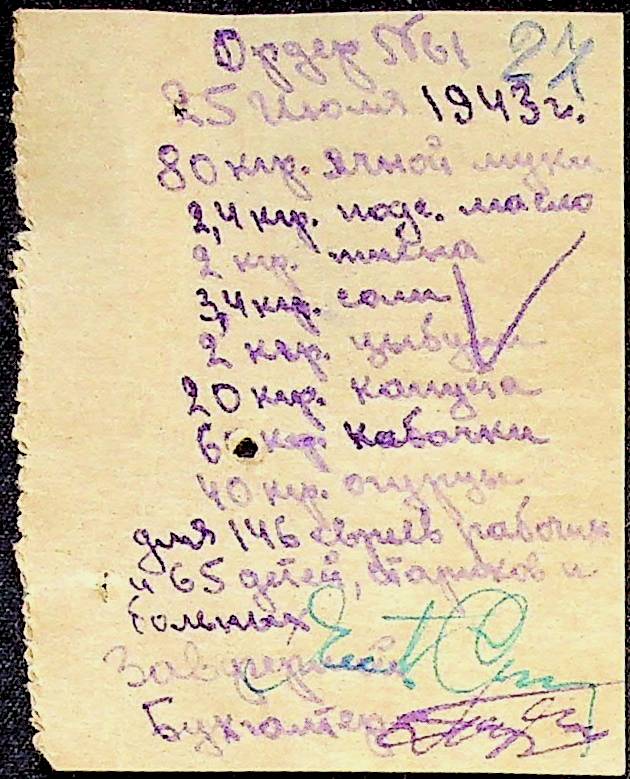 Ордер №61 27
25 Июля 1943 г.
80 кгр. ячной муки
2,4 кгр. подс. масло
2 кгр. пшена
3,4 кгр. соли
2 кгр. цыбули
20 кгр. капуста
60 кгр. кабачки
40 кгр. огурцы
для 146 евреев рабочих
и 65 детей, стариков и
больных
Зав.
Бухгалтер